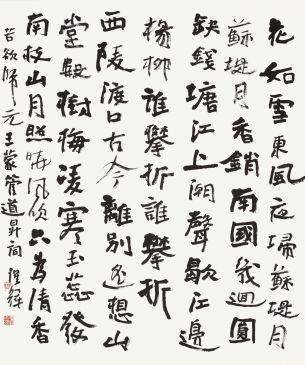 花如雪東風夜埽蘇堤月
蘇堤月香銷南國幾迴圓
缺錢塘江上潮聲歇江邊
楊柳誰攀折誰攀折
西陵渡口古今離別遙想山
堂數樹梅凌寒玉蕊發
南枝山月照曉風吹只為清香
苦欲歸元王蒙管道昇詞